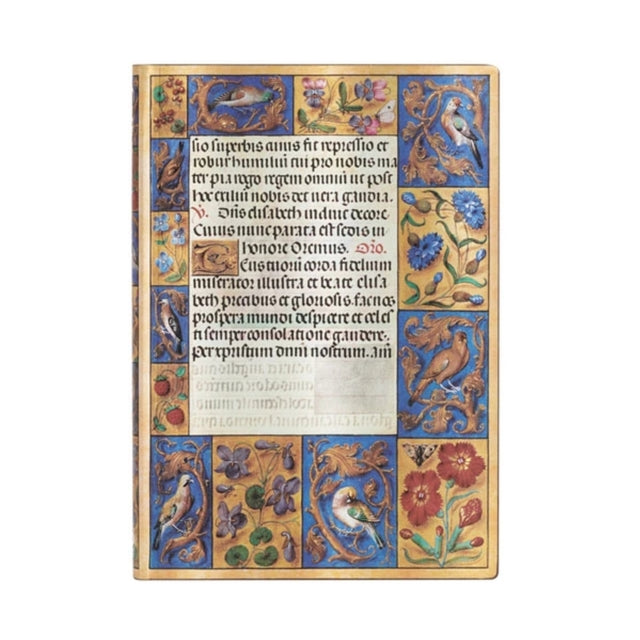 sio superbis cuius fit repressio et
robur humiliū tui pro nobis ma
ter pia rogo regem omniū ut post
hoc exiliū nobis det vera gaudia.
V. Diffusa
Cuius nunc parata est sedis in
honore Oremus. Oro.
Deus tuorū corda fidelium
miserator illustra et beate elisa
beth precibus et gloriosis. fac nos
prospera mundi despicere et celes
ti semper consolatione gaudere.
Per xpristum dnm̄ nostrum. am̄